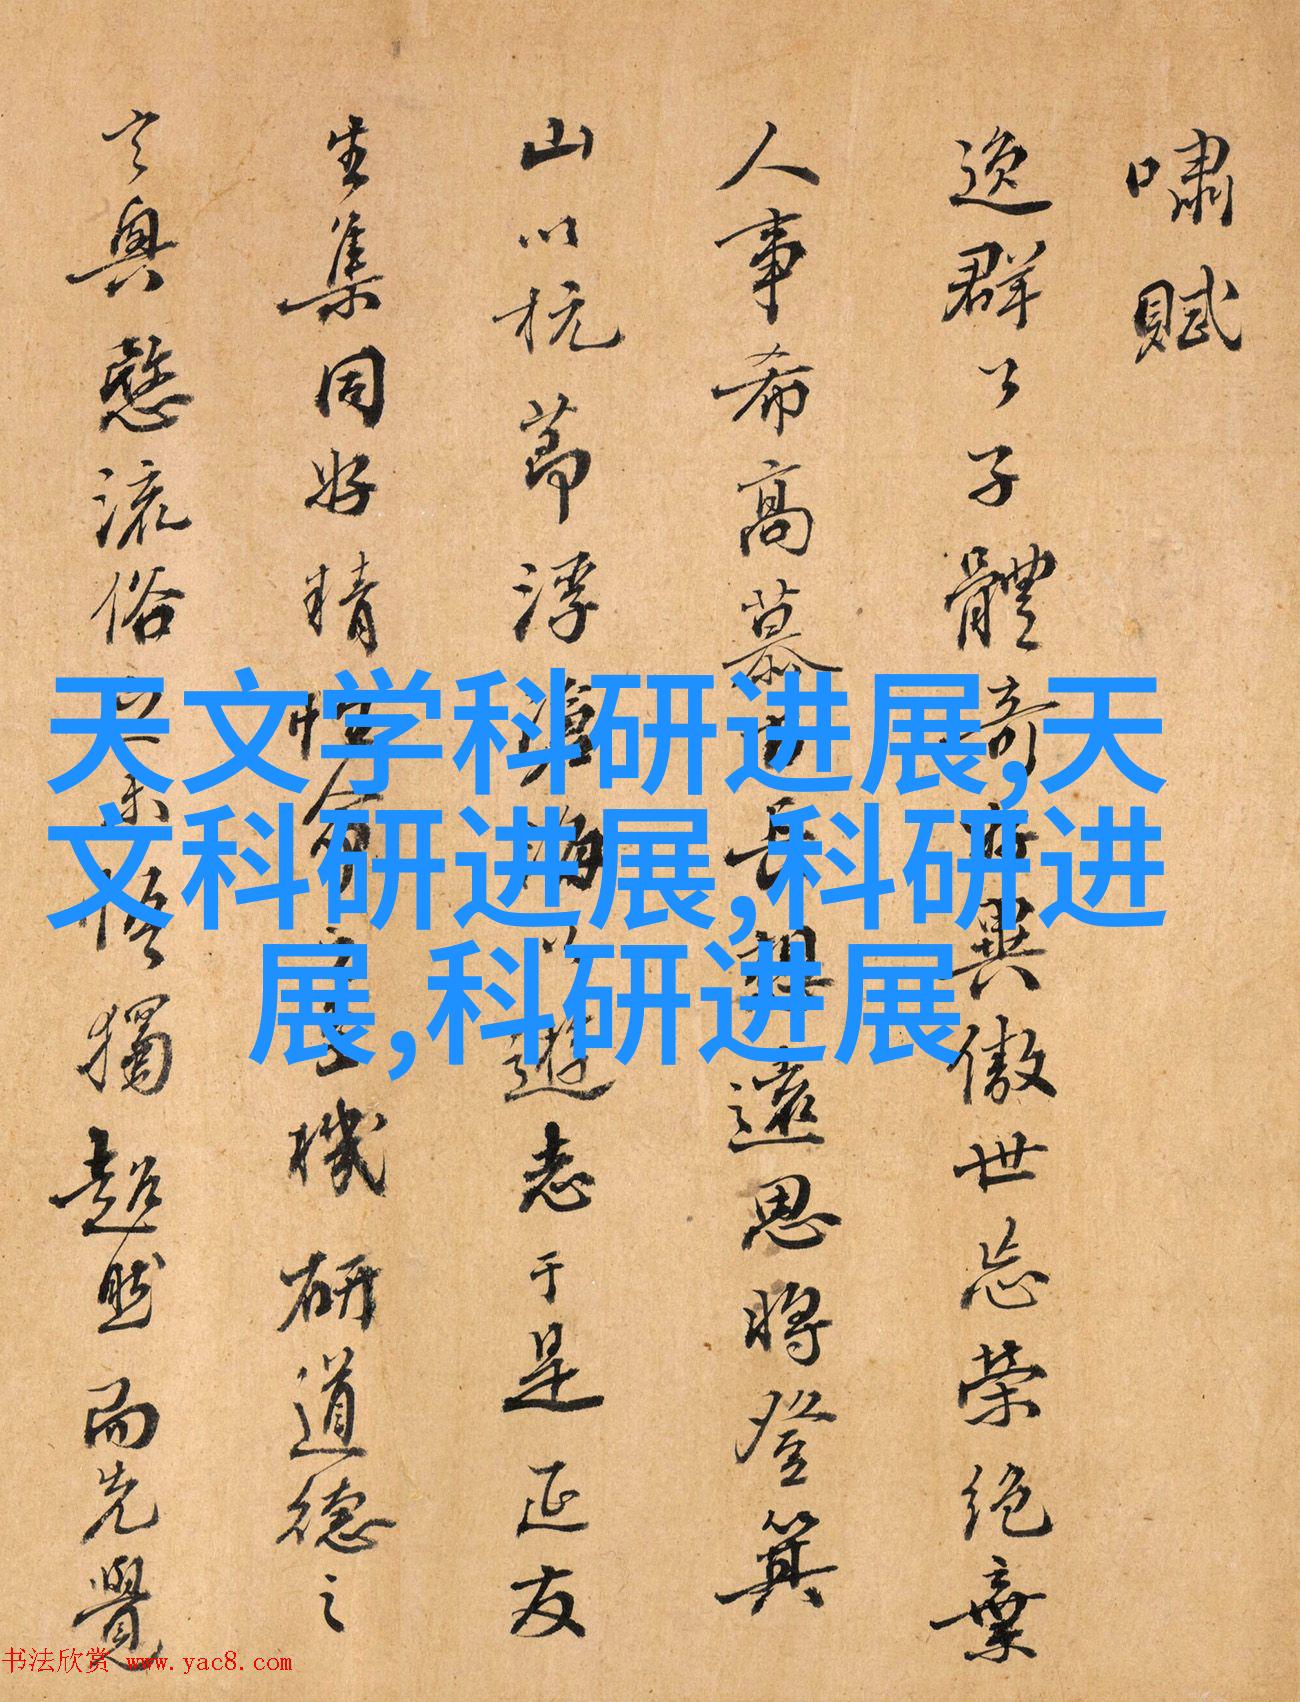 嘯賦
逸群公子體奇好異傲世忘榮絕棄
人事希高慕古長想遠思將登箕
山以杭節浮滄海以遊志于是延友
生集同好精性命之至機研道德之
玄奧愍流俗之未悟獨超然而先覺
天文学科研进展,天
文科研进展,科研进
展,科研进展
书法欣赏 www.yac8.com